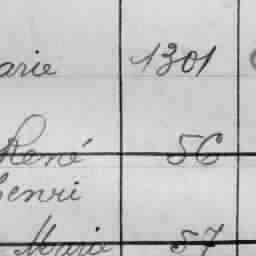 arie 1301
René 56
Henri
Marie 57